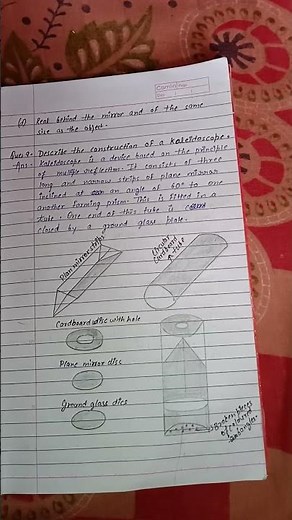 (c) Real behind the mirror and of the same
size as the object.
Ques 9- Describe the construction of a kaleidoscope.
Ans: Kaleidoscope is a device based on the principle
of multiple reflection. It consists of three
long and narrow strips of plane mirror
inclined at an angle of 60° to one
another forming prism. This is fitted in a
tube. One end of this tube is
closed by a ground glass plate.
Plan mirror strips
cardboard
tube
Cardboard disc with hole
Plane mirror disc
Ground glass dics
Broken pieces
of coloured
bangles